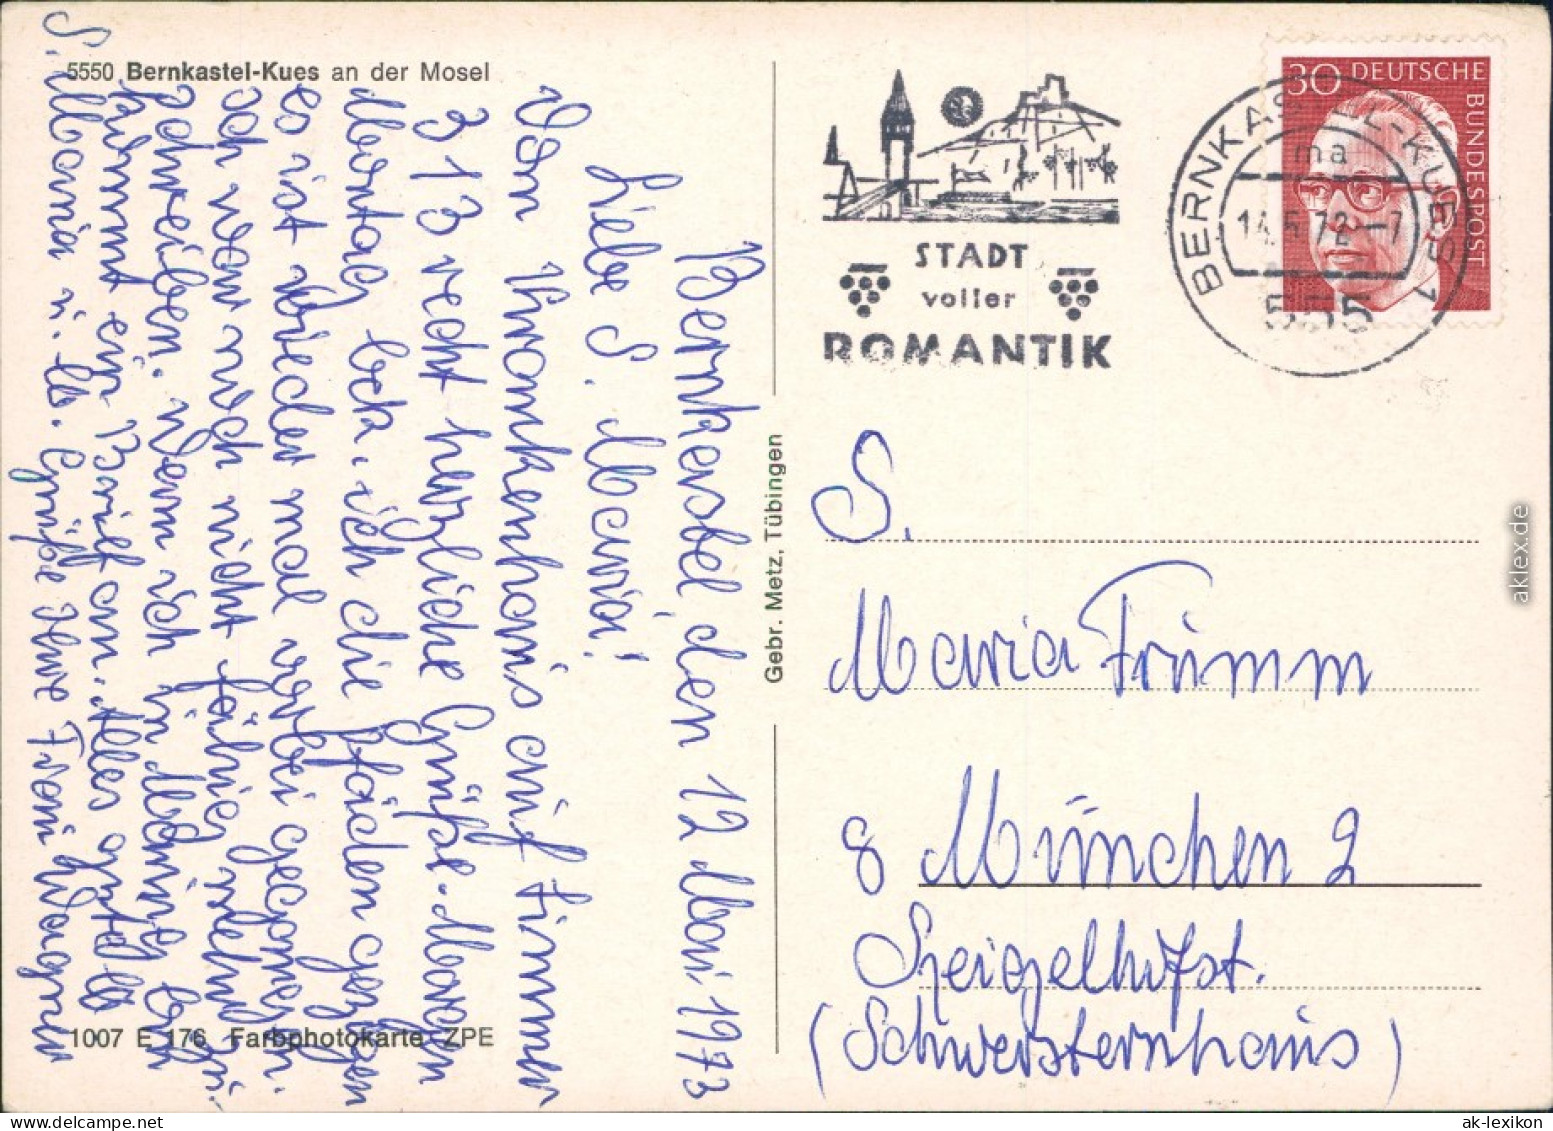 5550 Bernkastel-Kues an der Mosel
Bernkastel, den 12 Mai 1973
Liebe S. Maria!
Vom Krankenhaus auf Zimmer
313 recht herzliche Grüße. Morgen
Montag bek. ich die Fäden gezogen
es ist wieder mal vorbei gegangen.
Ich war noch nicht fähig
schreiben. Wenn ich in
kommt ein Brief an. Alles
S. Maria u. lb. Grüße Ihre Frau Wagner
1007 E 176 Farbphotokarte ZPE
Gebr. Metz, Tübingen
STADT
voller
ROMANTIK
BERNKASTEL-KUES 1
ma
14.5.72 -7
555
30 DEUTSCHE
BUNDESPOST
S.
Maria Frumm
8 München 2
(Schwesternhaus)
aklex.de
ak-lexikon